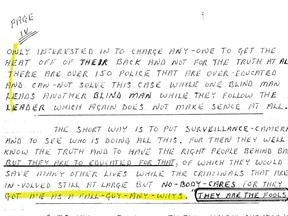 PAGE
IV
ONLY INTERESTED IN TO CHARGE ANY-ONE TO GET THE
HEAT OFF OF THEIR BACK AND NOT FOR THE TRUTH AT AL
THERE ARE OVER 150 POLICE THAT ARE OVER-EDUCATED
AND CAN-NOT SOLVE THIS CASE WHILE ONE BLIND MAN
LEADS ANOTHER BLIND MAN WHILE THEY FOLLOW THE
LEADER WHICH AGAIN DOES NOT MAKE SENCE AT ALL.
THE SHORT WAY IS TO PUT SURVEILLANCE-CAMERA
AND TO SEE WHO IS DOING ALL THIS. FOR THEN THEY WELL
KNOW THE TRUTH AND TO HAVE THE RIGHT PEOPLE BEHIND BA
BUT THEY ARE TO EDUCATED FOR THAT, OF WHICH THEY WOULD
SAVE MANY OTHER LIVES WHILE THE CRIMINALS THAT ARE
IN-VOLVED STILL AT LARGE BUT NO-BODY-CARES FOR THEY
GOT ME AS A FALL-GUY-ANY-WAYS. THEY ARE THE FOOLS